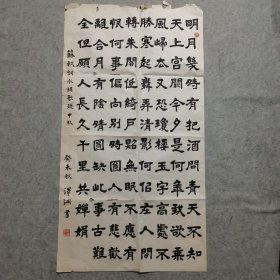 明月幾時有把酒問青天不知
天上宮闕今夕是何年我欲乘
風歸去又恐瓊樓玉宇高處不
勝寒起舞弄清影何似在人間
轉朱閣低綺戶照無眠不應有
恨何事偏向別時圓人有悲歡
離合月有陰晴圓缺此事古難
全但願人長久千里共嬋娟
蘇軾詞水調歌頭中秋
癸未秋 書